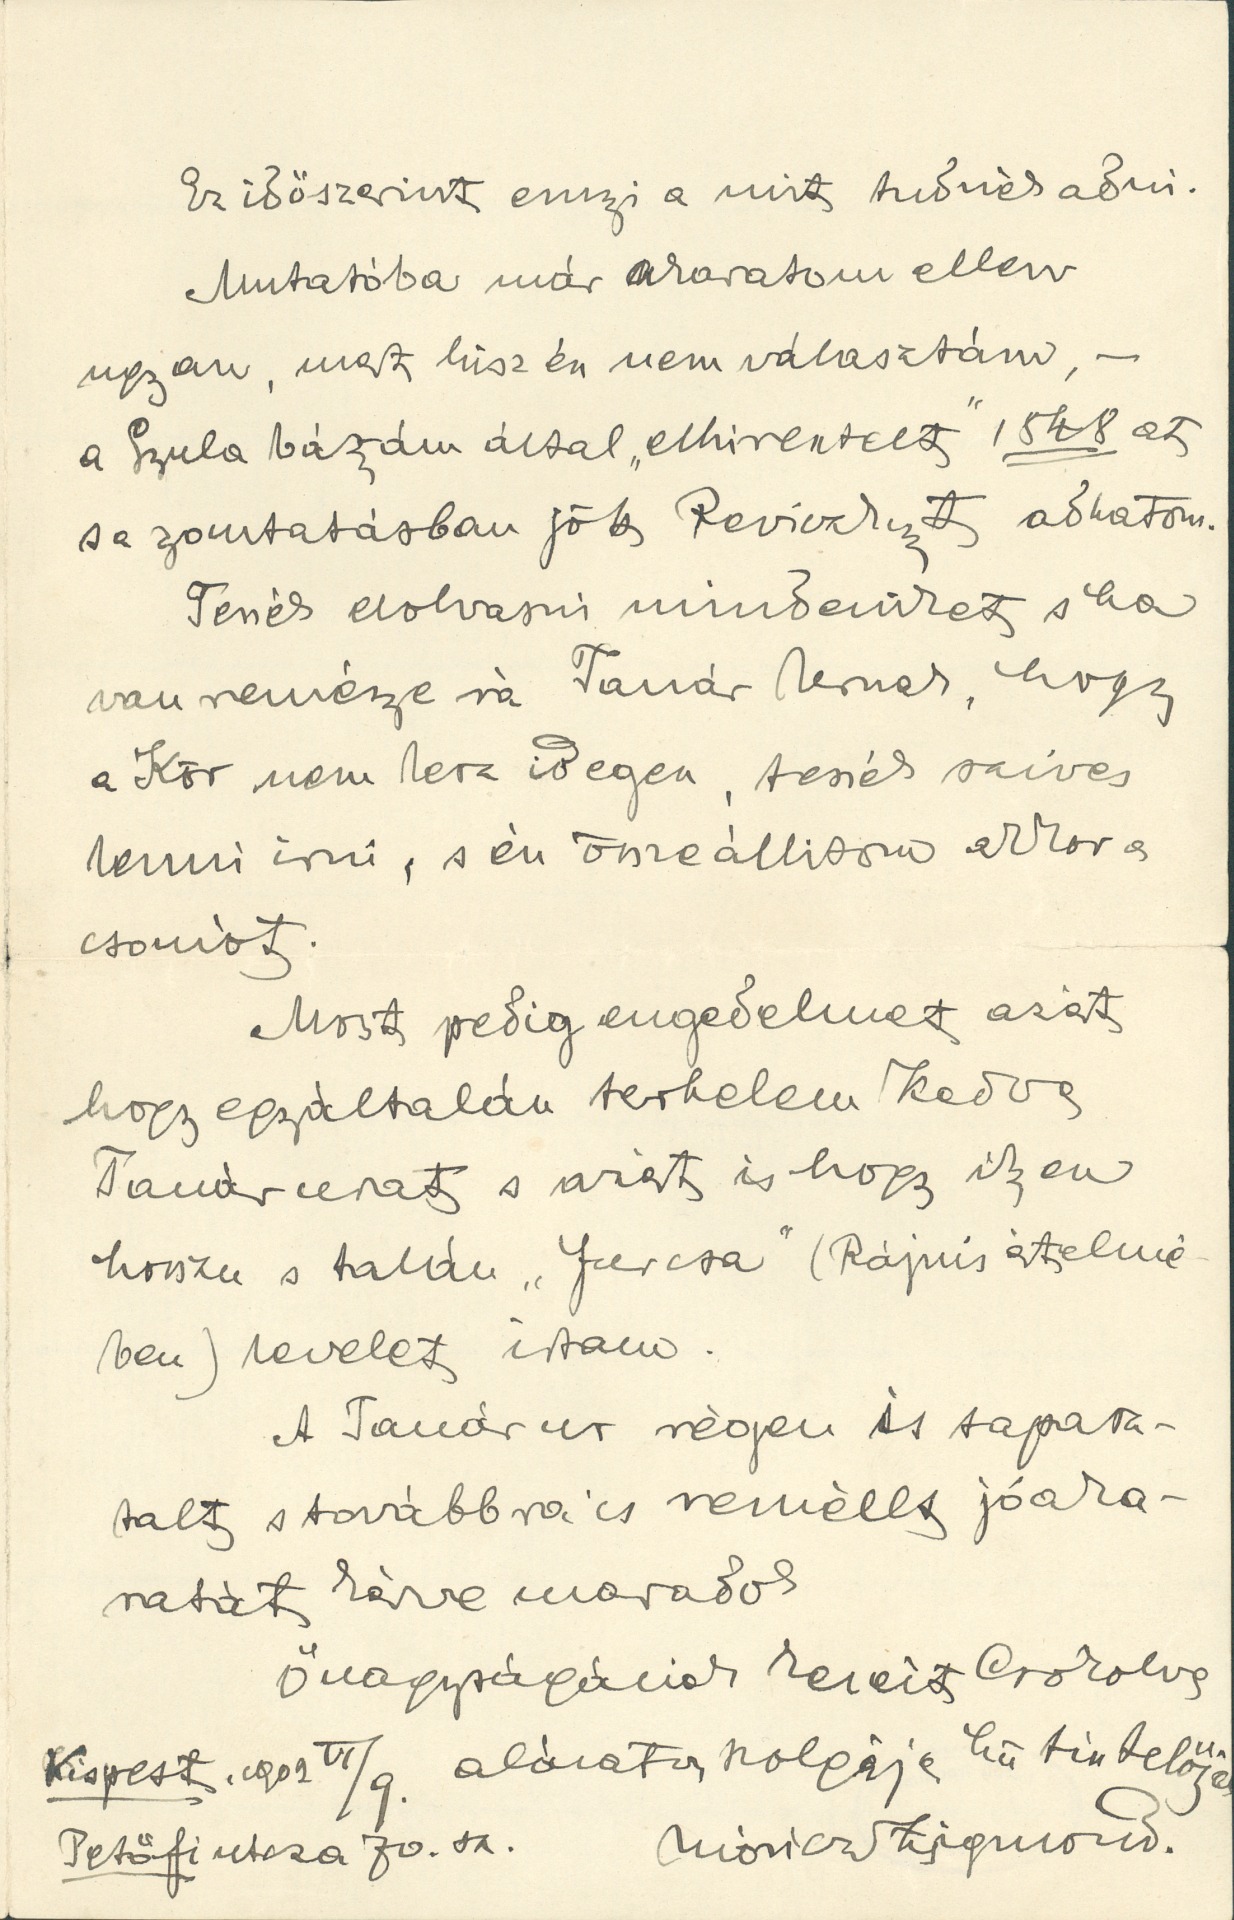 Ez időszerint ennyi a mit tudnék adni.
Mutatóba már akaratom ellen
ugyan, mert hisz én nem választám, –
a Gyula bátyám által „elhirentelt" 1848 at
s a zomtatásban jött Reviczkyt adhatom.
Tessék elolvasni mindeniket s ha
van reménye rá Tanár Urnak, hogy
a Kör nem lesz idegen, tessék szives
lenni irni, s én összeállitom akkor a
csomót.
Most pedig engedelmet azért
hogy egyáltalán terhelem Kedves
Tanár urat s azért is hogy ilyen
hosszu s talán „furcsa" (Rájnis értelmé-
ben) levelet irtam.
A Tanár ur régen is tapasz-
talt s továbbra is remélt jóaka-
ratát kérve maradok
Őnagyságának kezeit Csókolva
Kispest. 1902 VI/9. alázatos szolgája hű tisztelője
Petőfi utcza 70. sz. Móricz Zsigmond.